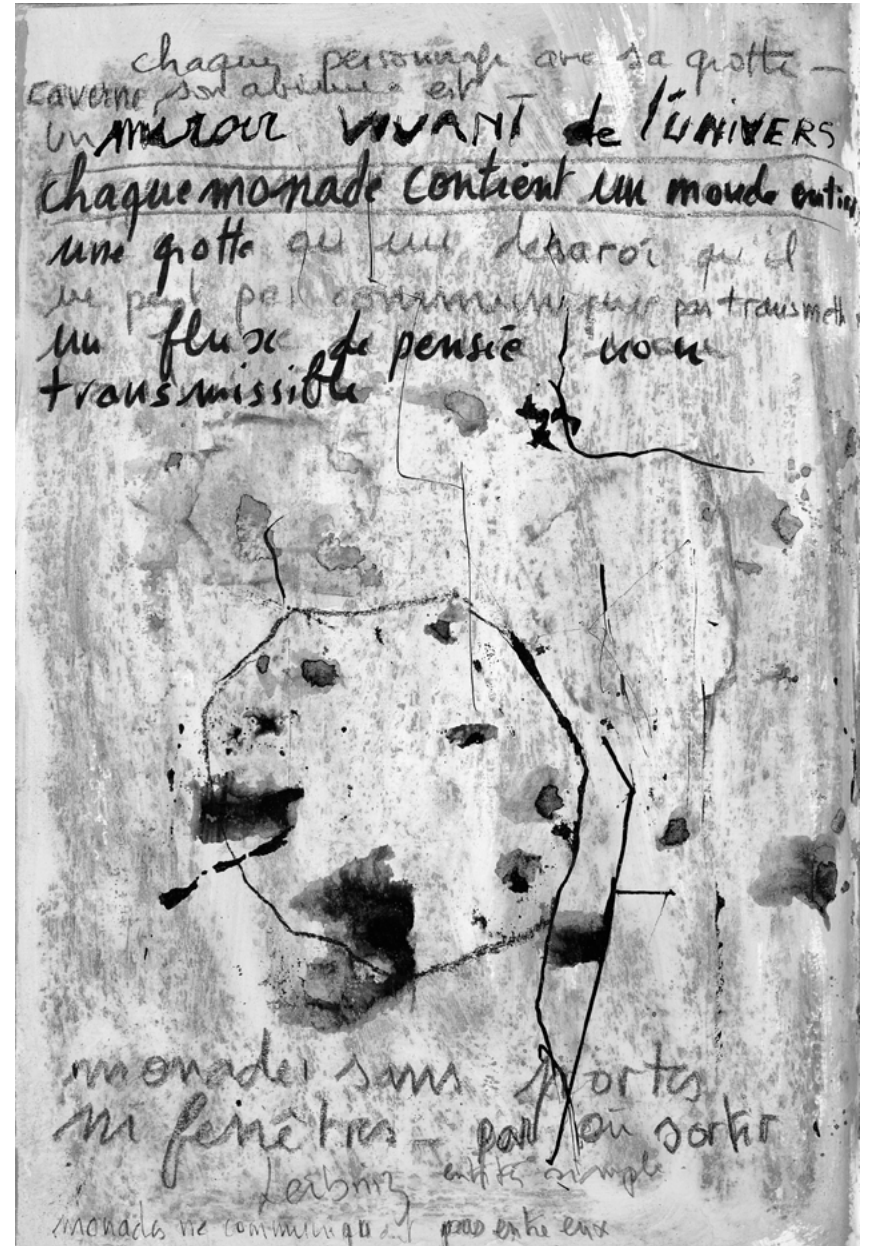 chaque personnage avec sa grotte –
caverne, son abîme est
un miroir VIVANT de l'UNIVERS
chaque monade contient un monde entier
une grotte ou un désaroi qu'il
ne peut pas communiquer pas transmett
un flux de pensée non
transmissible
monades sans portes
ni fenêtres – par où sortir
Leibniz entité simple
monades ne communiquent pas entre eux